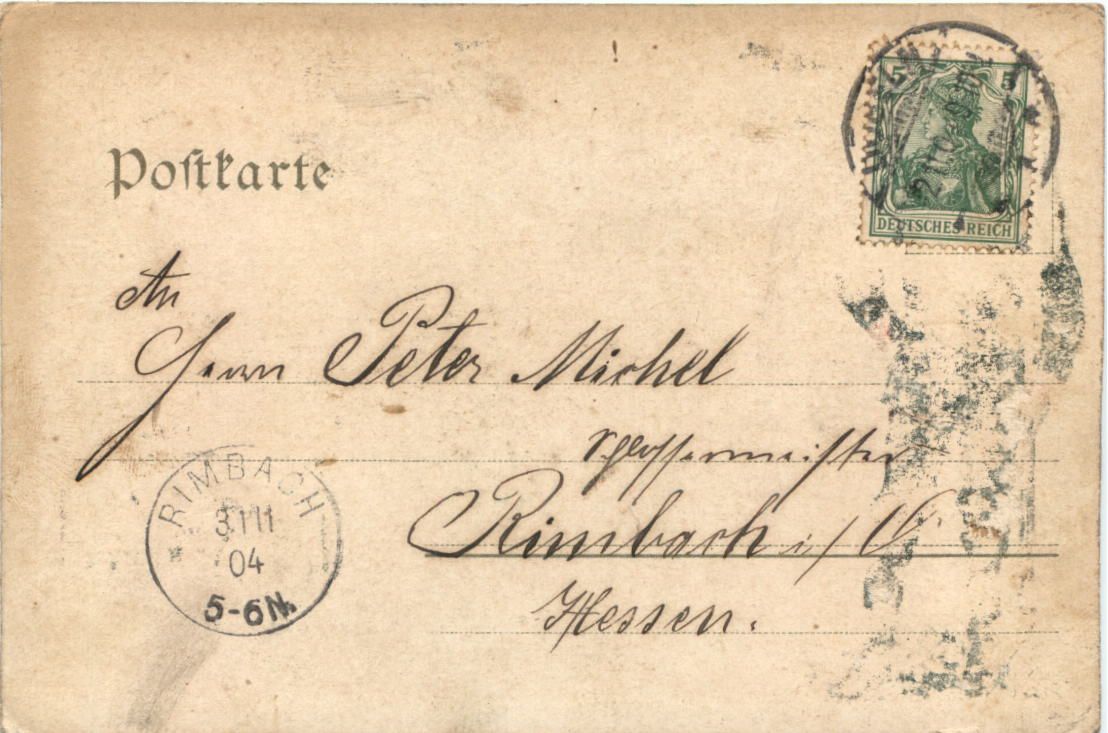 5 5
DEUTSCHES REICH
Postkarte
An
Herrn Peter Michel
Schlossermeister
Rimbach i/O
Hessen.
RIMBACH
3 1 11
04
5-6N.